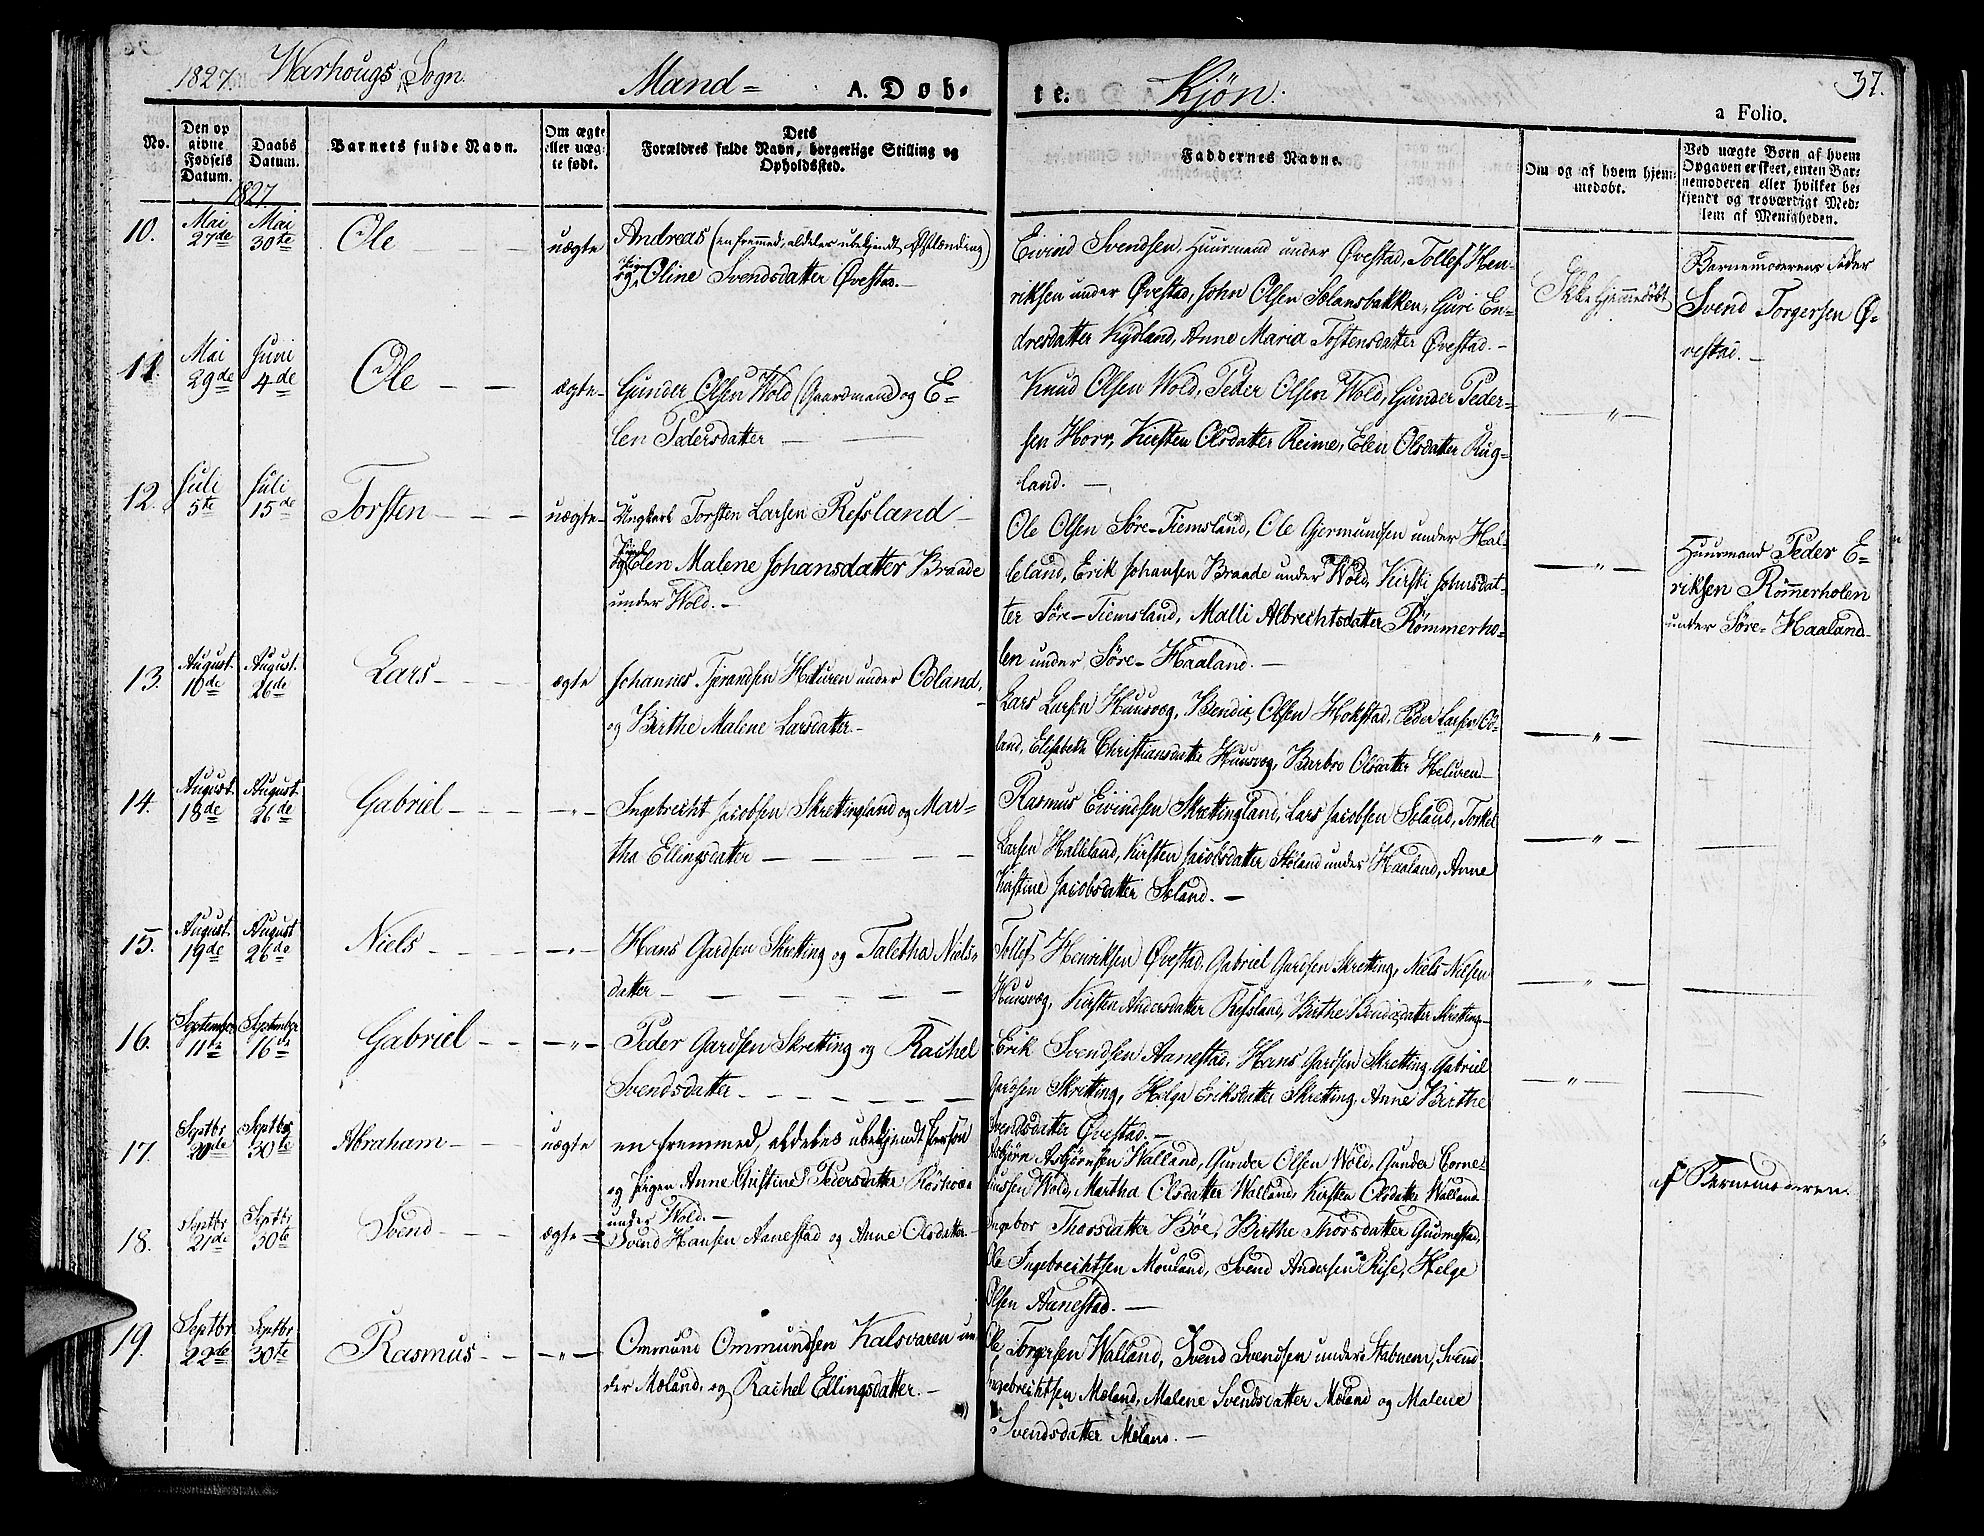 1827. Warhougs Sogn.
Mand= A. Døb= te. Kjøn.
37.
a Folio.
No.
Den op
givne
Fødsels
Datum.
Daabs
Datum.
Barnets fulde Navn.
Om ægte
eller uæg-
te født.
Dets
Forældres fulde Navn, borgerlige Stilling og
Opholdssted.
Faddernes Navne.
Om og af hvem hjem-
medøbt.
Ved uægte Børn af hvem
Opgaven er skeet, enten Bar-
nemoderen eller hvilket be-
kjendt og troværdigt Med-
lem af Menigheden.
1827
10. Mai 27de Mai 30te Ole - - - uægte
Andreas (en fremmed, aldeles ubekjendt Østlænding)
og Pigen Oline Svendsdatter Øvestad. -
Eivind Svendsen Huurmand under Øvestad, Tollef Hen-
riksen under Øvestad, John Olsen Solansbakken, Guri En-
dresdatter Kydland, Anne Maria Tostensdatter Øvestad. -
Ikke hjemmedøbt
Barnemoderens Fader
Svend Torgersen Ø-
vestad. -
11. Mai 29de Juni 4de Ole - - ægte -
Gunder Olsen Wold (Gaardmand) og E-
len Pedersdatter - -
Knud Olsen Wold, Peder Olsen Wold, Gunder Peder-
sen Horr, Kirsten Olsdatter Reime, Elen Olsdatter Rug-
land. -
- " -
12. Juli 5te Juli 15de Torsten - - - uægte -
Ungkarl Torsten Larsen Refsland -
og Pigen Elen Malene Johansdatter Braade
under Wold. -
Ole Olsen Søre-Tiemsland, Ole Gjermundsen under Hal-
leland, Erik Johansen Braade under Wold, Kirsti Johnsdat-
ter Søre-Tiemsland, Malli Albrechtsdatter Rømmerho-
len under Søre-Haaland. -
- " -
Huurmand Peder E-
riksen Rømmerholen
under Søre-Haaland -
13. August. 10de August. 26de Lars - - - ægte
Johannes Tjerandsen Heluren under Odland,
og Birthe Malene Larsdatter -
Lars Larsen Huusvæg, Bendix Olsen Hokstad, Peder Larsen Od-
land, Elisabeth Christiansdatter Huusvæg, Barbro Olsdatter Heluren -
- " -
14. August. 18de August. 26de Gabriel - - - - " -
Ingebrecht Jacobsen Skrettingland og Mar-
tha Ellingsdatter - - - - -
Rasmus Eivindsen Skrettingland, Lars Jacobsen Soland, Torkel
Larsen Halleland, Kirsten Jacobsdatter Støland under Haaland, Anne
Kirstine Jacobsdatter Soland. -
- " -
15. August. 19de August 26de Niels - - - - - " -
Hans Gardsen Skretting og Taletha Niels-
datter - - - - -
Tollef Henriksen Øvestad, Gabriel Gardsen Skretting, Niels Nilsen
Huusvæg, Kirsten Andersdatter Refsland, Birthe Bendixdatter Skretting -
- " -
16. September 11te September 16de Gabriel - - - " -
Peder Gardsen Skretting og Rachel
Svendsdatter - - - - - -
Erik Svendsen Aanestad, Hans Gardsen Skretting, Gabriel
Gardsen Skretting, Helga Eriksdatter Skretting, Anne Birthe
Svendsdatter Øvestad. -
- " -
17. Septbr 20de Septbr 30te Abraham - - - uægte
en fremmed, aldeles ubekjendt Person
og Pigen Anne Christine Pedersdatter
under Wold. -
Asbjørn Asbjørnsen Walland, Gunder Olsen Wold, Gunder Corne-
liussen Wold, Martha Olsdatter Walland, Kirsten Olsdatter Walland
af Barnemoderen.
18. Septbr 21de Septbr 30te Svend - - - ægte -
Svend Hansen Aanestad og Anne Olsdatter -
Ingebor Thorsdatter Bøe, Birthe Thorsdatter Gudmestad,
Ole Ingebrechtsen Mouland, Svend Andersen Rise, Helge
Olsen Aanestad. -
19. Septbr 22de Septbr 30te Rasmus - - - " -
Ommund Ommundsen Kalsvaren un-
der Moland, og Rachel Ellingsdatter. -
Ole Torgersen Walland, Svend Svendsen under Stabnem, Svend
Ingebrechtsen Moland, Malene Svendsdatter Moland og Malene
Svendsdatter Moland. -